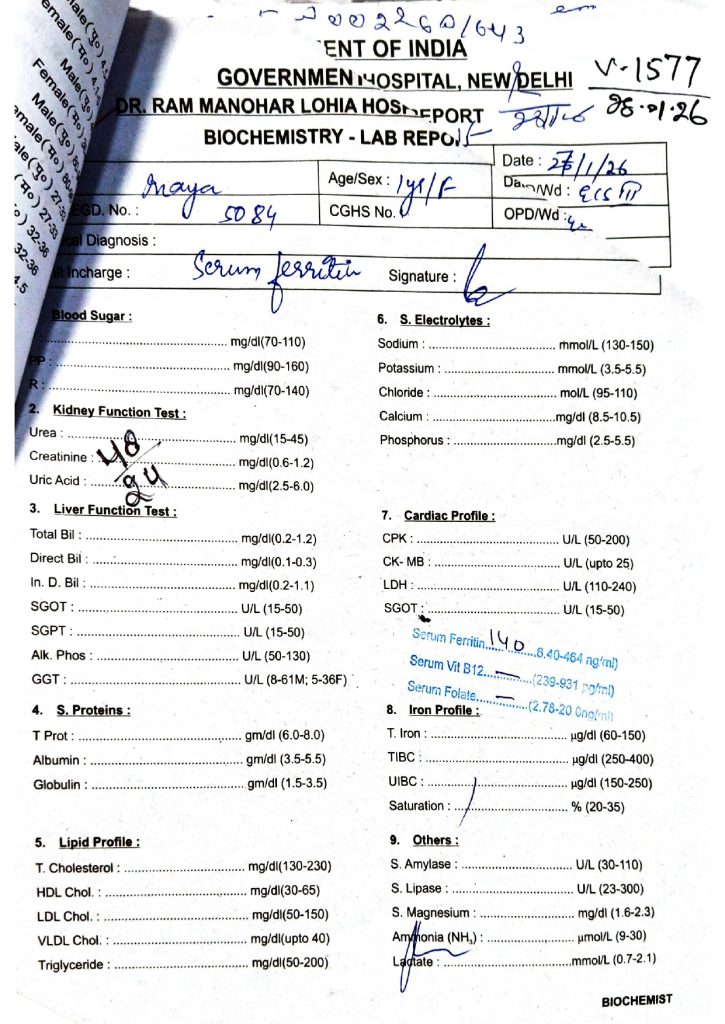 ENT OF INDIA
GOVERNMEN HOSPITAL, NEW DELHI
V-1577
28.01.26
DR. RAM MANOHAR LOHIA HOS
EPORT
BIOCHEMISTRY - LAB REPO
Male(पु०)
Female(म०)
Male(पु०)
32-36
Maya
Age/Sex : 1yr/F
Date : 28/1/26
EGD. No. : 5084
CGHS No.
OPD/Wd :
Diagnosis :
Incharge : Serum ferritin Signature :
Blood Sugar :
mg/dl(70-110)
PP : mg/dl(90-160)
R : mg/dl(70-140)
2. Kidney Function Test :
Urea : mg/dl(15-45)
Creatinine : mg/dl(0.6-1.2)
Uric Acid : mg/dl(2.5-6.0)
48/24
3. Liver Function Test :
Total Bil : mg/dl(0.2-1.2)
Direct Bil : mg/dl(0.1-0.3)
In. D. Bil : mg/dl(0.2-1.1)
SGOT : U/L (15-50)
SGPT : U/L (15-50)
Alk. Phos : U/L (50-130)
GGT : U/L (8-61M; 5-36F)
4. S. Proteins :
T Prot : gm/dl (6.0-8.0)
Albumin : gm/dl (3.5-5.5)
Globulin : gm/dl (1.5-3.5)
5. Lipid Profile :
T. Cholesterol : mg/dl(130-230)
HDL Chol. : mg/dl(30-65)
LDL Chol. : mg/dl(50-150)
VLDL Chol. : mg/dl(upto 40)
Triglyceride : mg/dl(50-200)
6. S. Electrolytes :
Sodium : mmol/L (130-150)
Potassium : mmol/L (3.5-5.5)
Chloride : mol/L (95-110)
Calcium : mg/dl (8.5-10.5)
Phosphorus : mg/dl (2.5-5.5)
7. Cardiac Profile :
CPK : U/L (50-200)
CK- MB : U/L (upto 25)
LDH : U/L (110-240)
SGOT : U/L (15-50)
Serum Ferritin 140 6.40-464 ng/ml)
Serum Vit B12 — (239-931 pg/ml)
Serum Folate — (2.78-20 0ng/ml)
8. Iron Profile :
T. Iron : µg/dl (60-150)
TIBC : µg/dl (250-400)
UIBC : µg/dl (150-250)
Saturation : % (20-35)
9. Others :
S. Amylase : U/L (30-110)
S. Lipase : U/L (23-300)
S. Magnesium : mg/dl (1.6-2.3)
Ammonia (NH₃) : µmol/L (9-30)
Lactate : mmol/L (0.7-2.1)
BIOCHEMIST